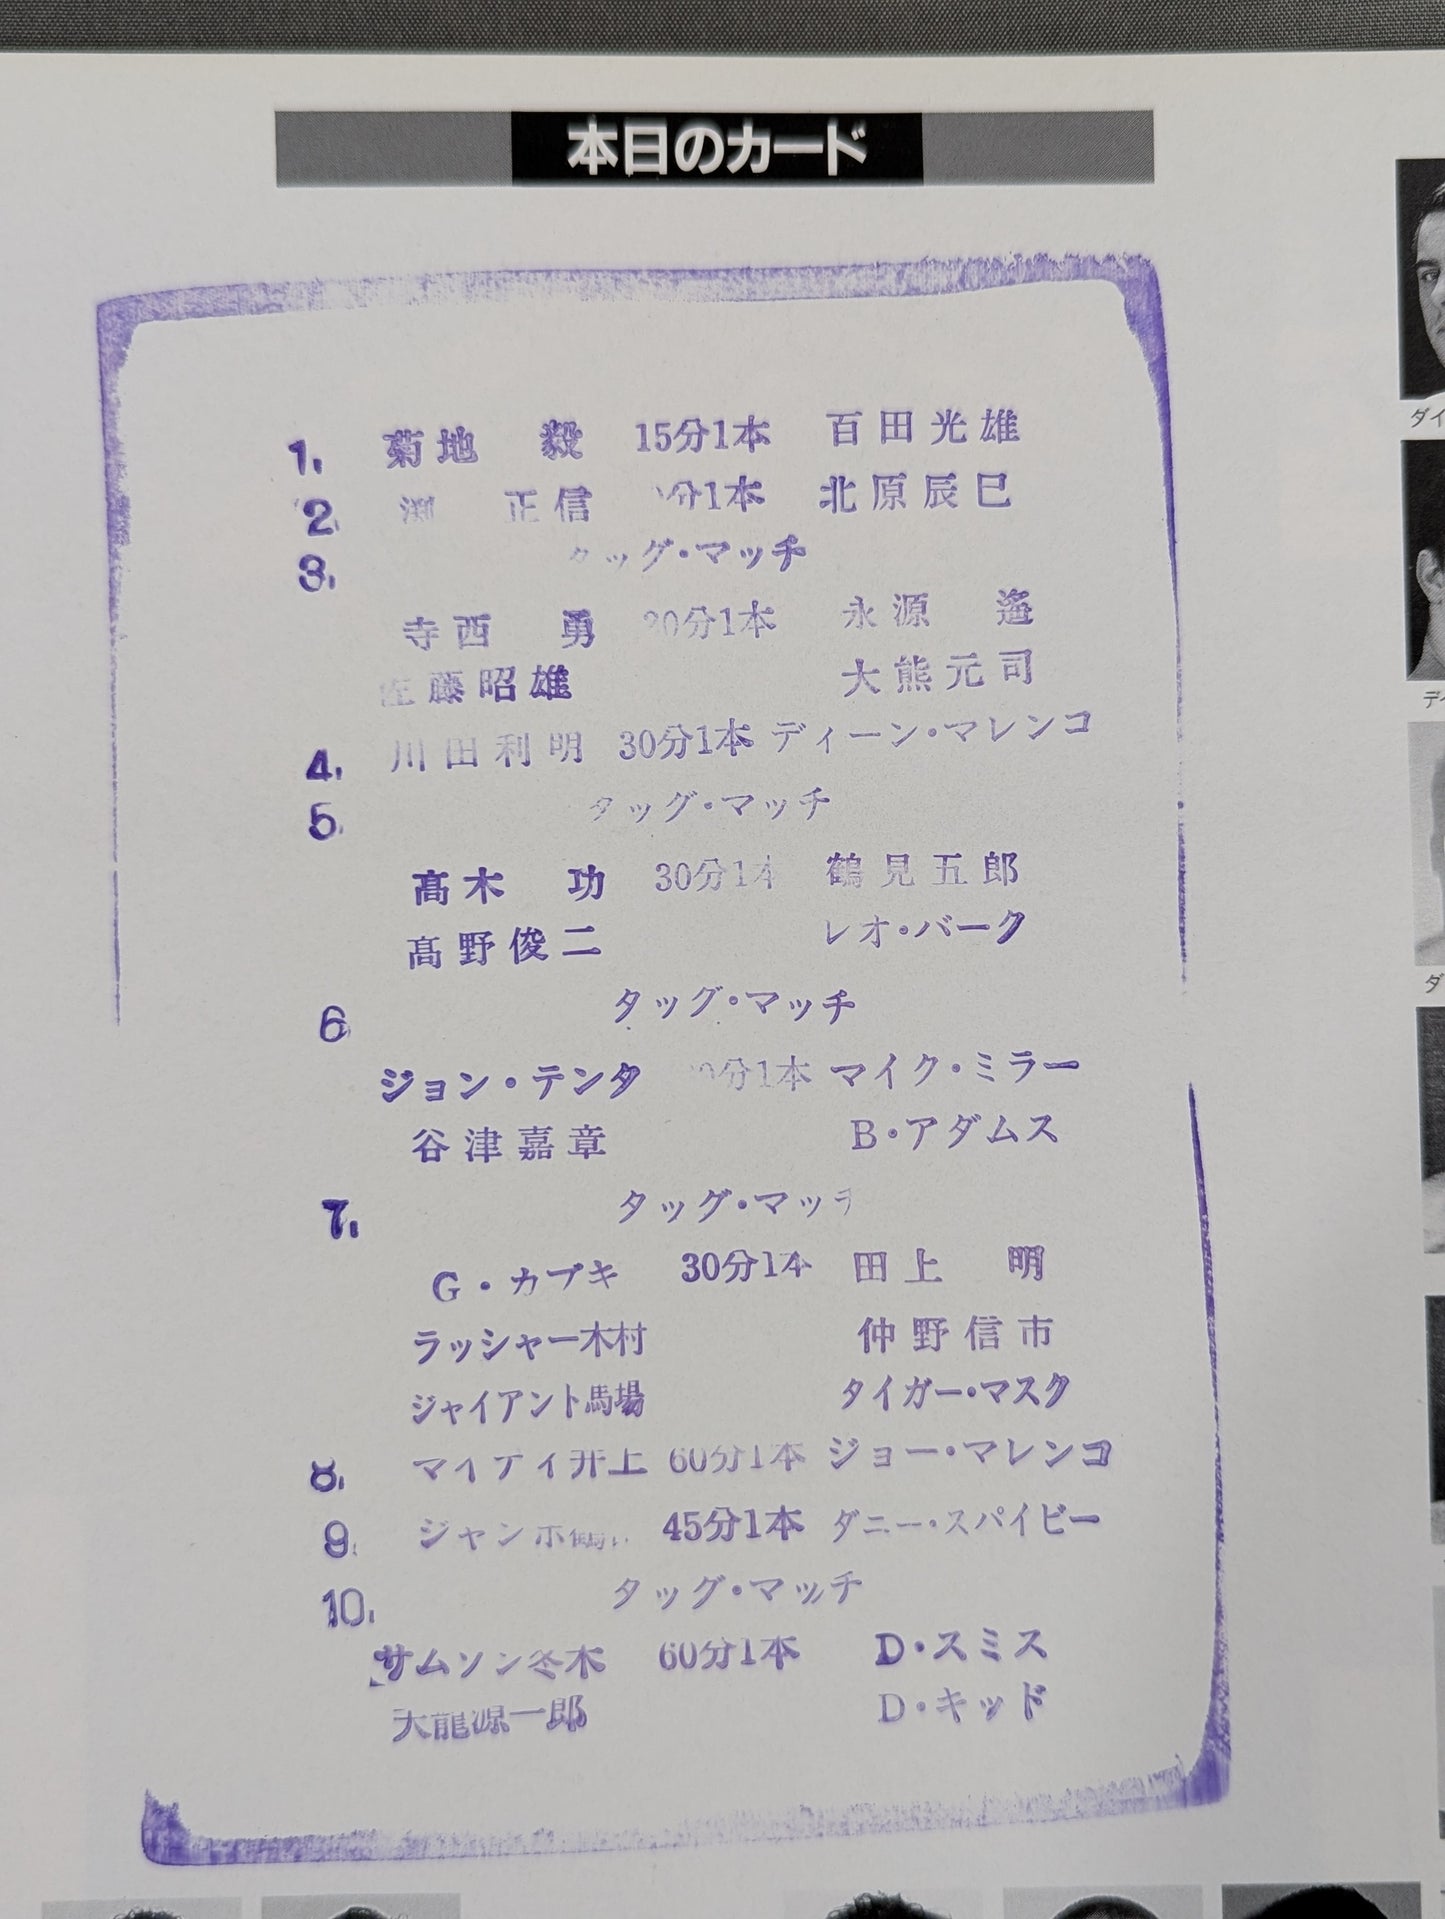 本日のカード
1. 菊地 毅 15分1本 百田光雄
2. 渕 正信 分1本 北原辰巳
3. タッグ・マッチ
寺西 勇 20分1本 永源 遙
佐藤昭雄 大熊元司
4. 川田利明 30分1本 ディーン・マレンコ
5. タッグ・マッチ
高木 功 30分1本 鶴見五郎
高野俊二 レオ・バーク
6 タッグ・マッチ
ジョン・テンタ 分1本 マイク・ミラー
谷津嘉章 B・アダムス
7. タッグ・マッチ
G・カブキ 30分1本 田上 明
ラッシャー木村 仲野信市
ジャイアント馬場 タイガー・マスク
8. マイティ井上 60分1本 ジョー・マレンコ
9. ジャンボ鶴 45分1本 ダニー・スパイビー
10. タッグ・マッチ
サムソン冬木 60分1本 D・スミス
天龍源一郎 D・キッド
ダイ
デ
ダ